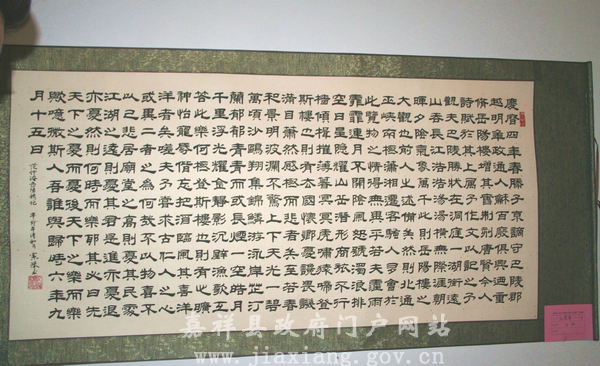 慶曆四年春滕子京謫守巴陵郡
越明年政通人和百廢俱興乃重
脩岳陽樓增其舊制刻唐賢今人
詩賦於其上屬予作文以記之予
觀夫巴陵勝狀在洞庭一湖銜遠
山吞長江浩浩湯湯橫無際涯朝
暉夕陰氣象萬千此則岳陽樓之
大觀也前人之述備矣然則北通
巫峽南極瀟湘遷客騷人多會于
此覽物之情得無異乎若夫霪雨
霏霏連月不開陰風怒號濁浪排
空日星隱耀山岳潛形商旅不行
檣傾楫摧薄暮冥冥虎嘯猿啼登
斯樓也則有去國懷鄉憂讒畏譏
滿目蕭然感極而悲者矣至若春
和景明波瀾不驚上下天光一碧
萬頃沙鷗翔集錦鱗游泳岸芷汀
蘭郁郁青青而或長煙一空皓月
千里浮光耀金靜影沉璧漁歌互
答此樂何極登斯樓也則有心曠
神怡寵辱偕忘把酒臨風其喜洋
洋者矣嗟夫予嘗求古仁人之心
或異二者之為何哉不以物喜不
以己悲居廟堂之高則憂其民處
江湖之遠則憂其君是進亦憂退
亦憂然則何時而樂耶其必曰先
天下之憂而憂後天下之樂而樂
歟噫微斯人吾誰與歸時六年九
月十五日
嘉祥县政府门户网站
www.jiaxiang.gov.cn